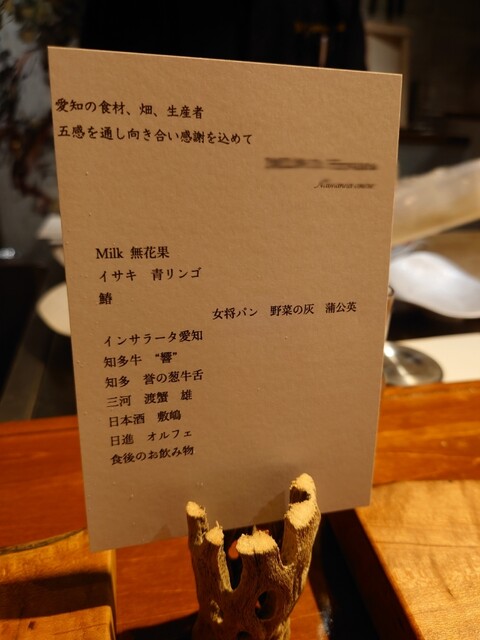 愛知の食材、畑、生産者
五感を通し向き合い感謝を込めて
Milk 無花果
イサキ　青リンゴ
鰆
女将パン　野菜の灰　蒲公英
インサラータ愛知
知多牛　“響”
知多　誉の葱牛舌
三河　渡蟹　雄
日本酒　敷嶋
日進　オルフェ
食後のお飲み物